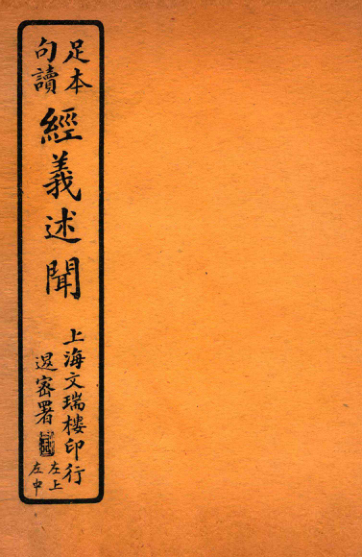 足本
句讀
經義述聞
上海文瑞樓印行
退密署
左上
左中